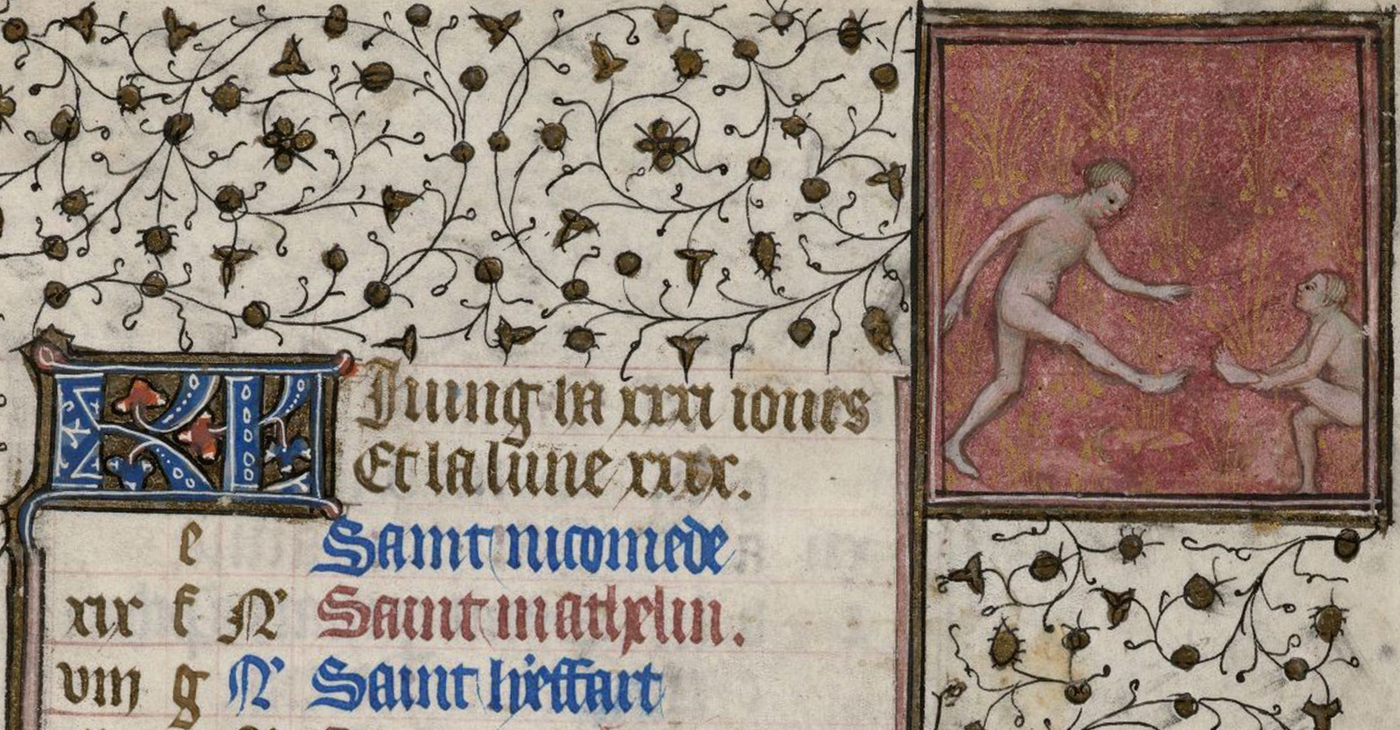 KL Juing ha xxxi iours
Et la lune xxix.
e Saint nicomede
xix f N' Saint mathelin.
viii g N' Saint lieffart